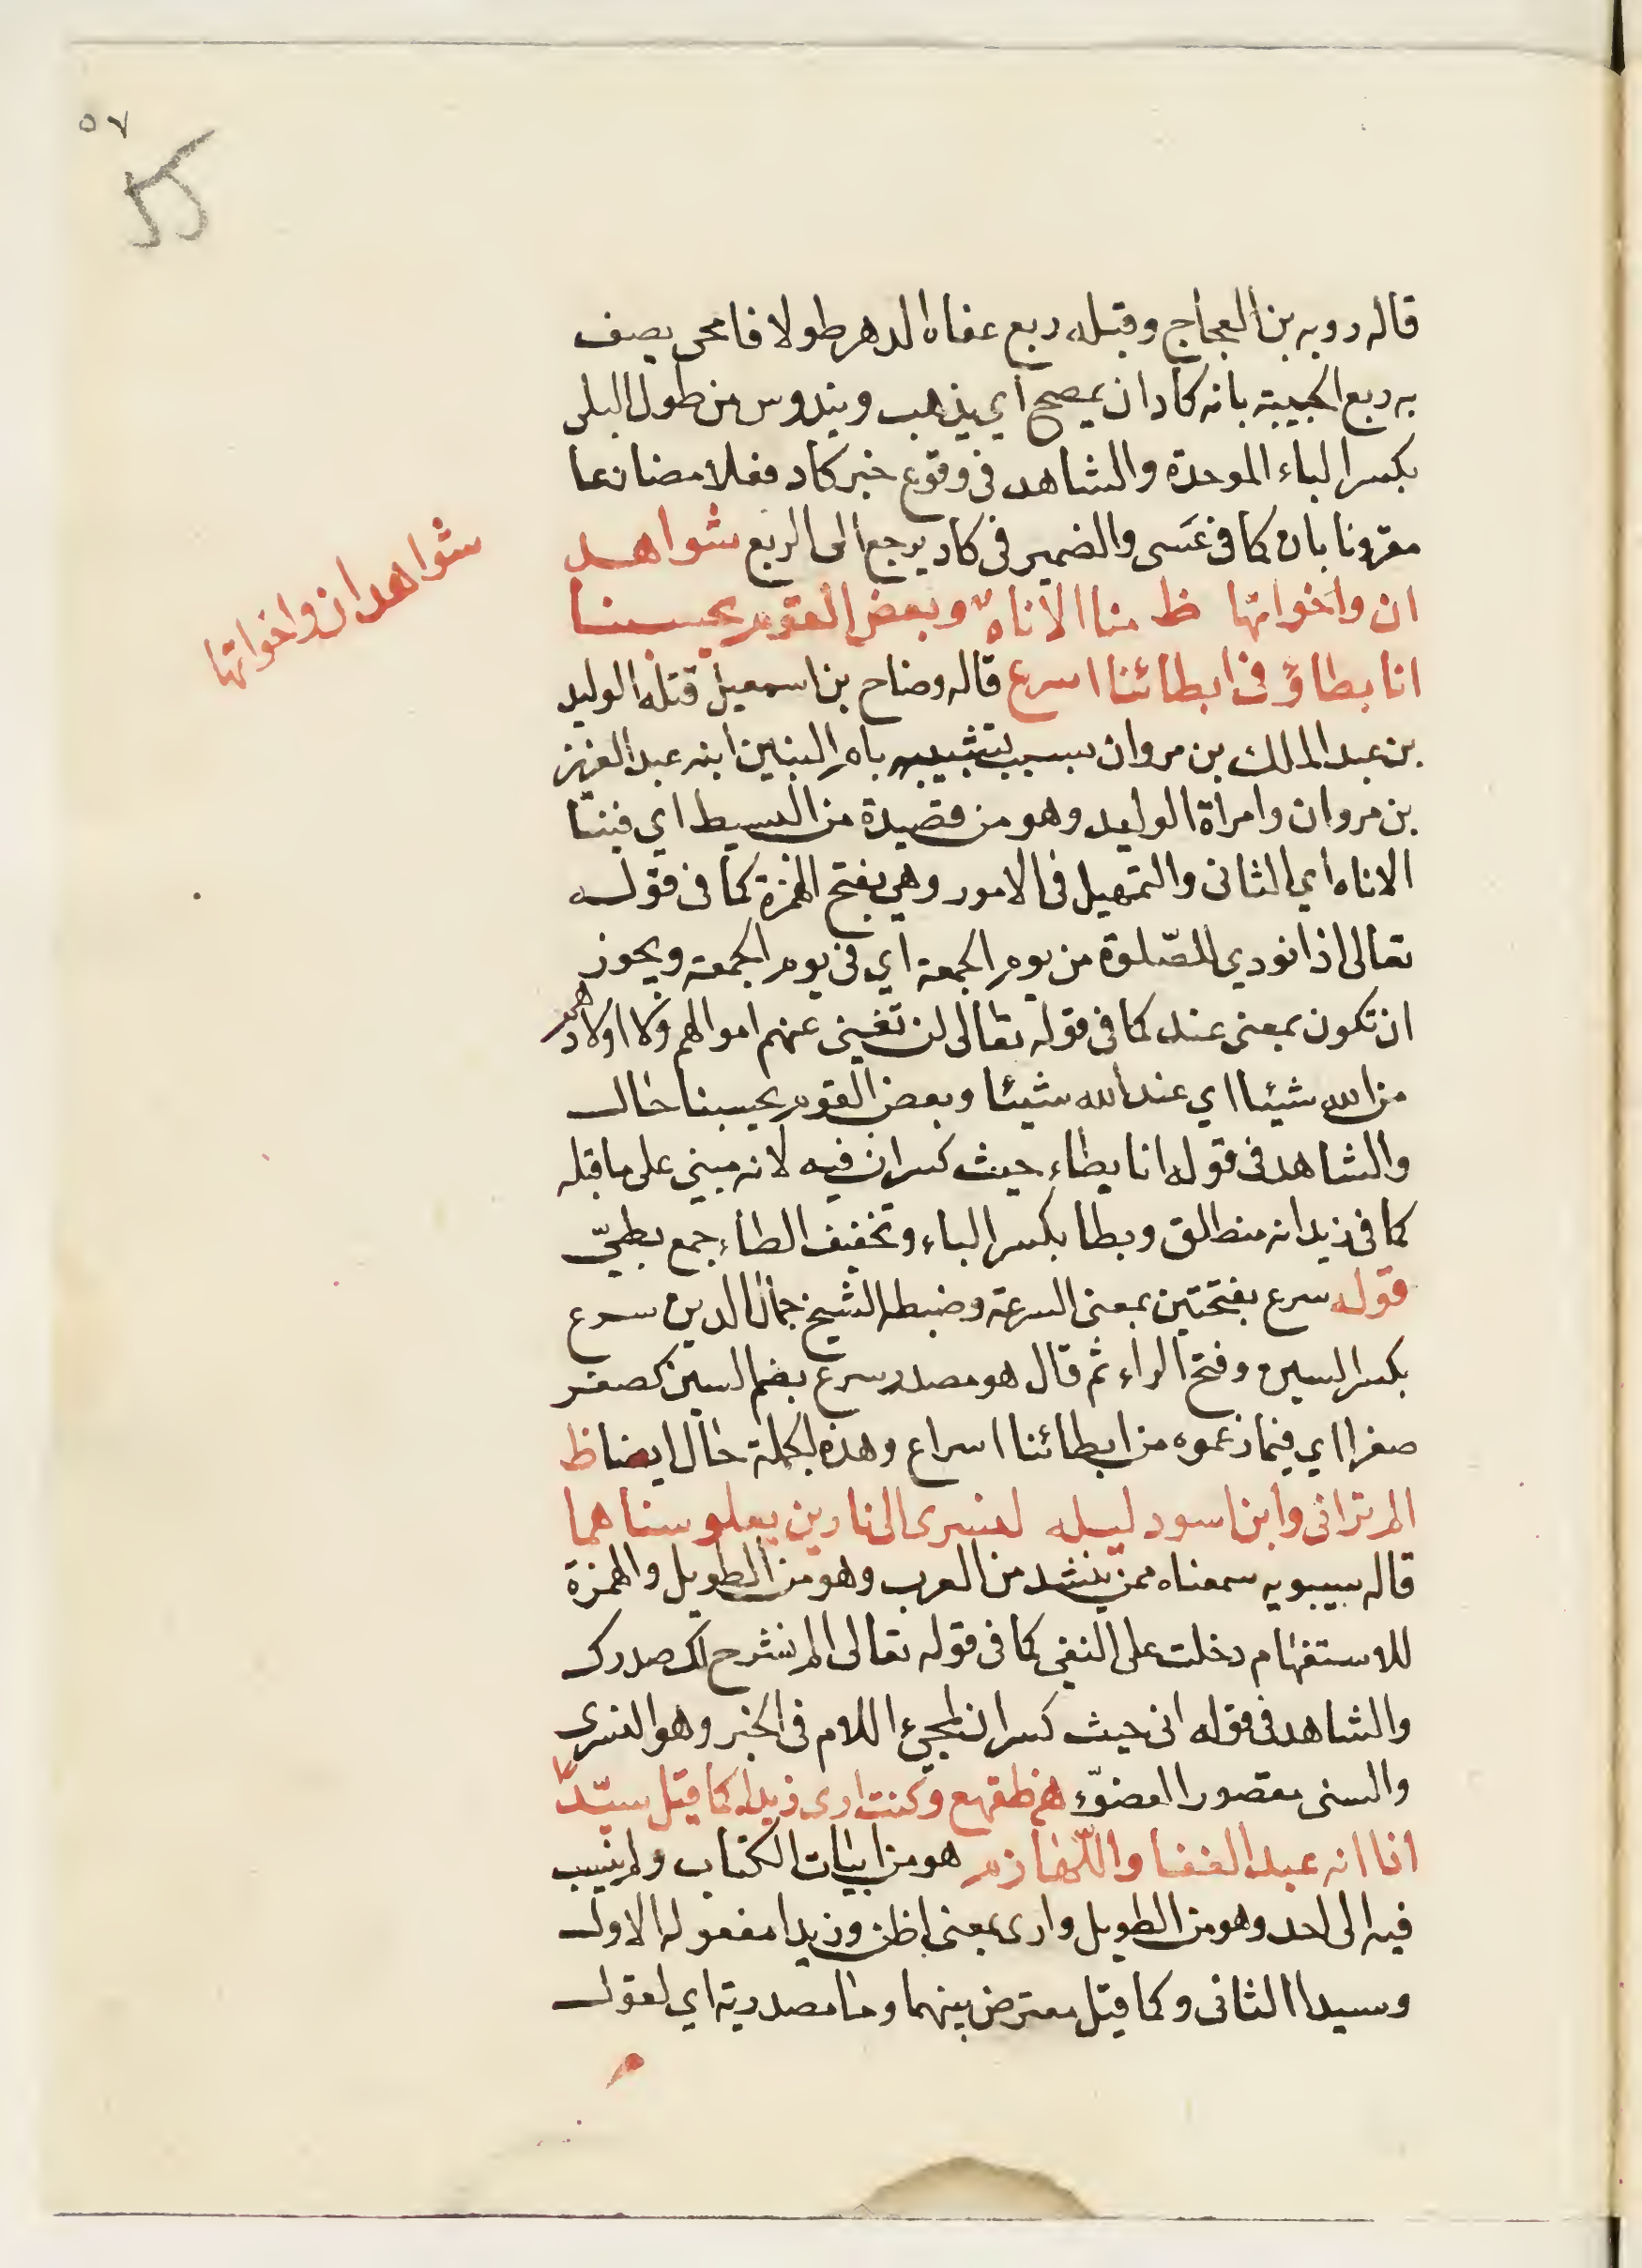 ٥٧
قاله روبه بن العجاج وقبله ربع عفاه الدهر طولا فامحى يصف
به ربع الحبيبة بانه كاد ان يمصح اي يذهب ويندوس من طول البلى
بكسر الباء الموحدة والشاهد فى وقوع خبر كاد فعلا مضارعا
مقرونا بان كما فى عَسَى والضمير فى كاد يرجع الى الربع شواهد
ان واخواتها ظ منا الاناة وبعض القوم يحسبنا
انا بطاؤ فى ابطائنا اسرع قاله وضاح بن اسمعيل قتله الوليد
بن عبد الملك بن مروان بسبب تشبيبه بام البنين ابنه عبد العزيز
بن مروان وامراة الوليد وهو من قصيدة من البسيط اي فينا
الاناه اي التانى والتمهيل فى الامور وهي بفتح الهمزة كما فى قوله
تعالى اذا نودي للصّلوة من يوم الجمعة اي فى يوم الجمعة ويجوز
ان تكون بمعنى عند كما فى قوله تعالى لن تغنى عنهم اموالهم ولا اولادهم
من الله شيئا اي عند الله شيئا وبعض القوم يحسبنا حال
والشاهد فى قوله انا بطاء حيث كسر ان فيه لانه مبنى على ما قبله
كما فى زيد انه منطلق وبطا بكسر الباء وتخفيف الطاء جمع بطيّ
قوله سرع بفتحتين بمعنى السرعة وضبطه الشيخ جمال الدين سرع
بكسر السين وفتح الراء ثم قال هو مصدر سرع بضم السين كصغر
صغرا اي فيما زعموه من ابطائنا اسراع وهذه الجملة حال ايضا ظ
الم ترانى وابن اسود ليله لنسرى الى نارين يعلو سناهما
قاله سيبويه سمعناه ممن ينشد من العرب وهو من الطويل والهمزة
للاستفهام دخلت على النفي كما فى قوله تعالى الم نشرح لك صدرك
والشاهد فى قوله انى حيث كسر ان لمجيء اللام فى الخبر وهو لنسرى
والسنى مقصورا الضوّء هم ظقهع وكنت ارى زيدا كما قيل سيّدًا
اذا انه عبد القفا واللّهازم هو من ابيات الكتاب ولم ينسب
فيه الى احد وهو من الطويل وارى بمعنى اظن وزيدا مفعوله الاول
وسيدا الثانى وكما قيل معترض بينهما وما مصدرية اي لقول
شواهد ان واخواتها